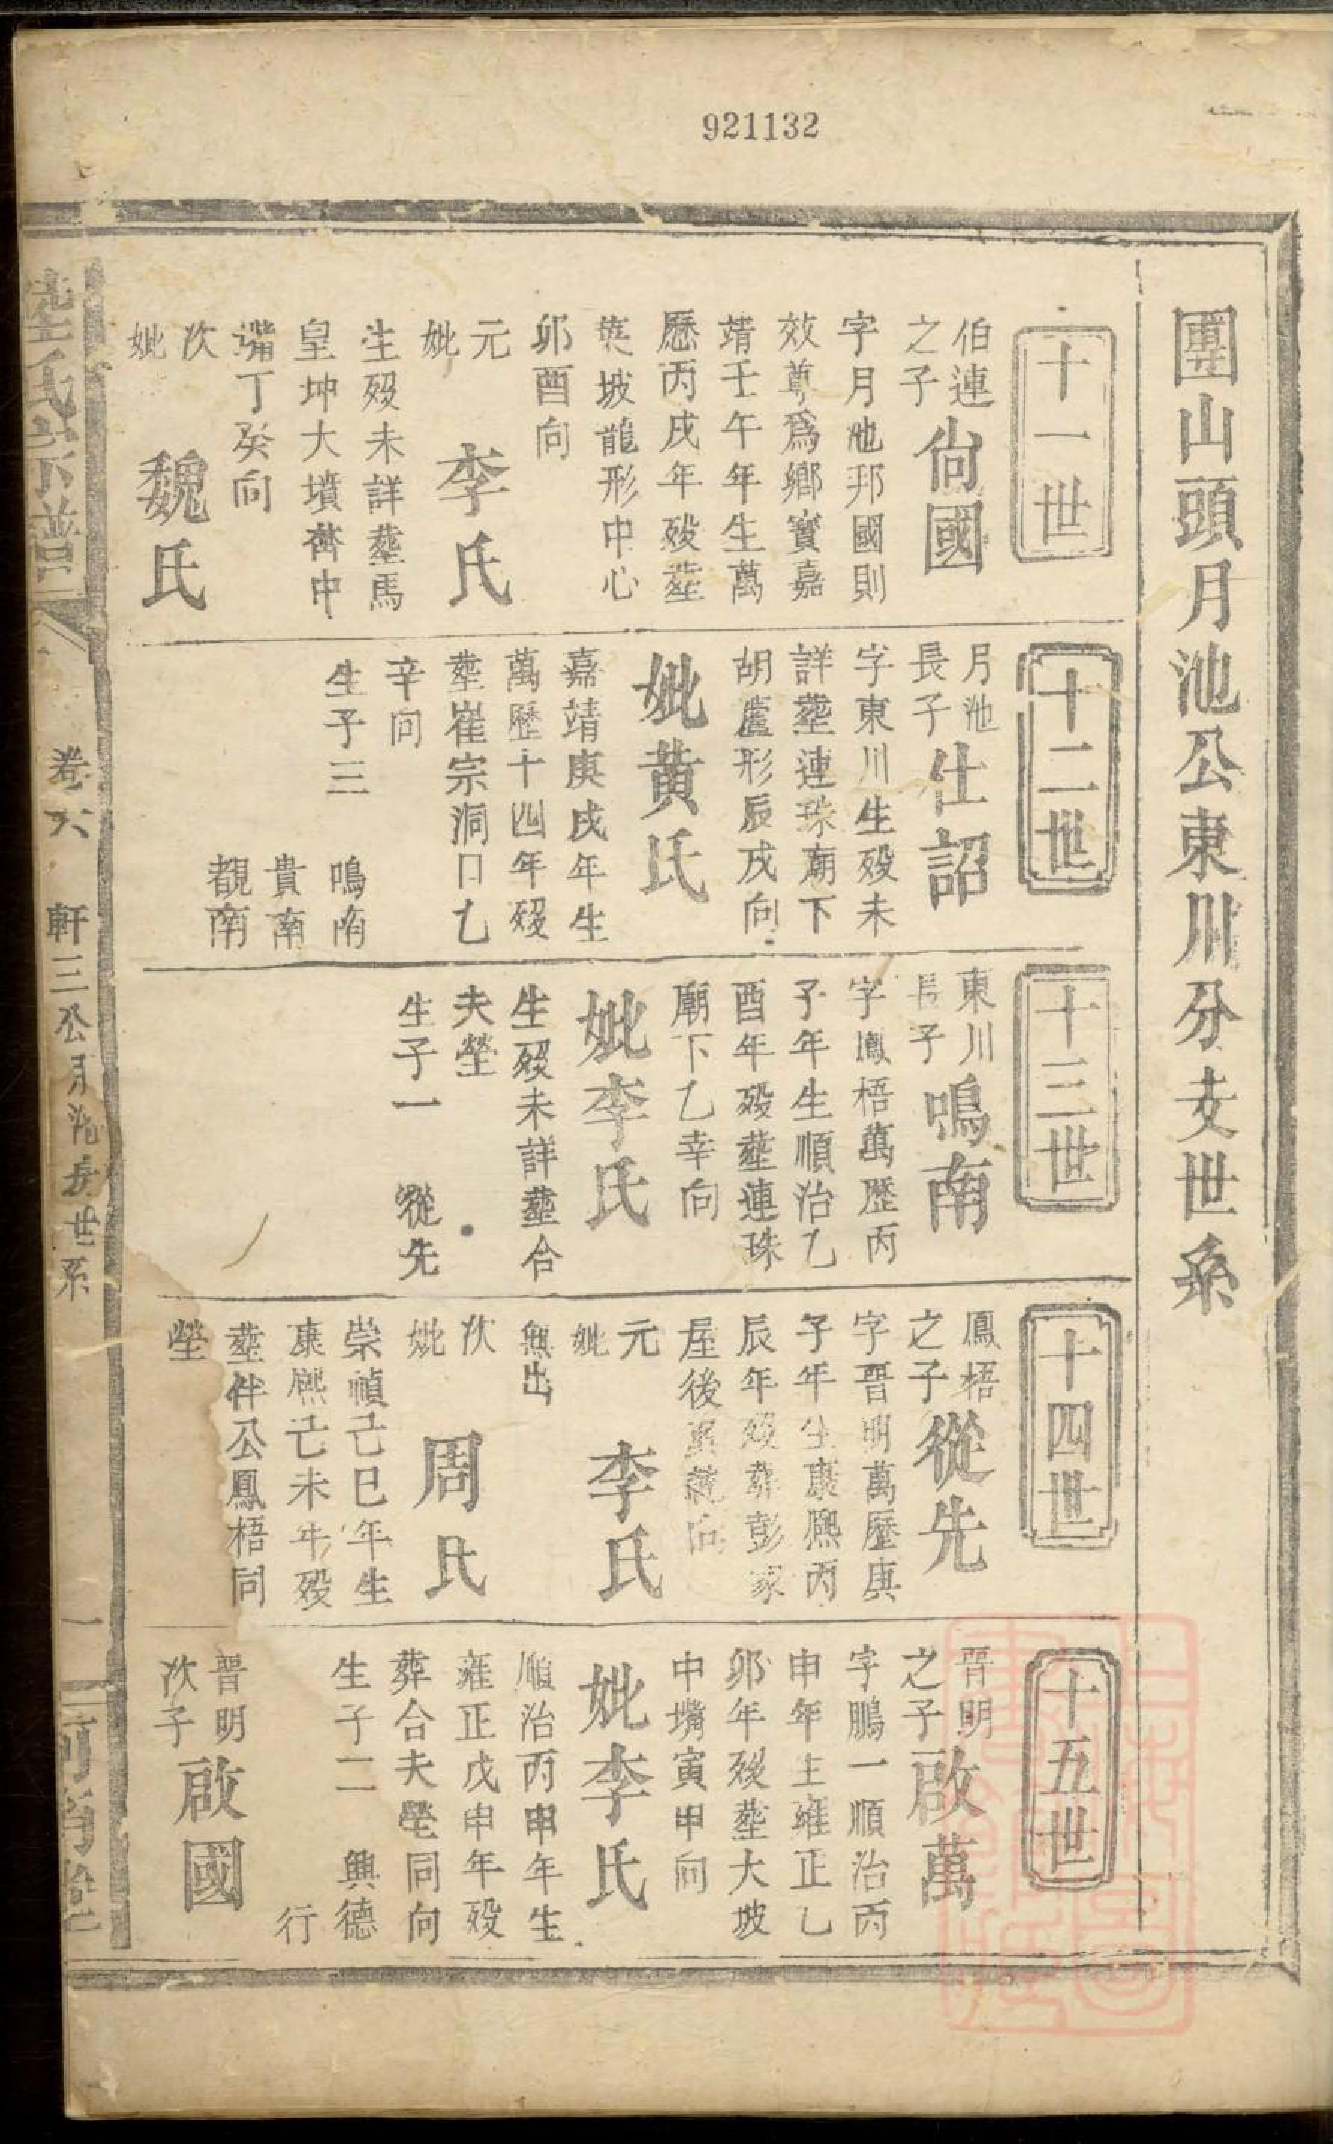 921132
團山頭月池公東川分支世系
十一世
伯連
之子
尙國
字月池邦國則
效尊爲鄉賓嘉
靖壬午年生萬
歷丙戌年歿塟
筻坡龍形中心
卯酉向
元
妣
李氏
生歿未詳塟馬
皇坤大墳脊中
嘴丁癸向
次
妣
魏氏
十二世
月池
長子
仕詔
字東川生歿未
詳塟連珠廟下
胡蘆形辰戌向
妣黃氏
嘉靖庚戌年生
萬歷十四年歿
塟崔宗洞口乙
辛向
生子三
鳴南
貴南
覩南
十三世
東川
長子
鳴南
字鳳梧萬歷丙
子年生順治乙
酉年歿塟連珠
廟下乙幸向
妣李氏
生歿未詳塟合
夫塋
生子一 從先
十四世
鳳梧
之子
從先
字晋明萬歷庚
子年生康熙丙
辰年歿葬彭家
屋後
元
妣
李氏
無出
次
妣
周氏
崇禎己巳年生
康熙己未年歿
塟伴公鳳梧同
塋
十五世
晋明
之子
啟萬
字鵬一順治丙
申年生雍正乙
卯年歿塟大坡
中嘴寅甲向
妣李氏
順治丙申年生
雍正戊申年歿
葬合夫塋同向
生子二 興德
行
晋明
次子
啟國
氏宗譜
卷六 軒三公月池房世系
一